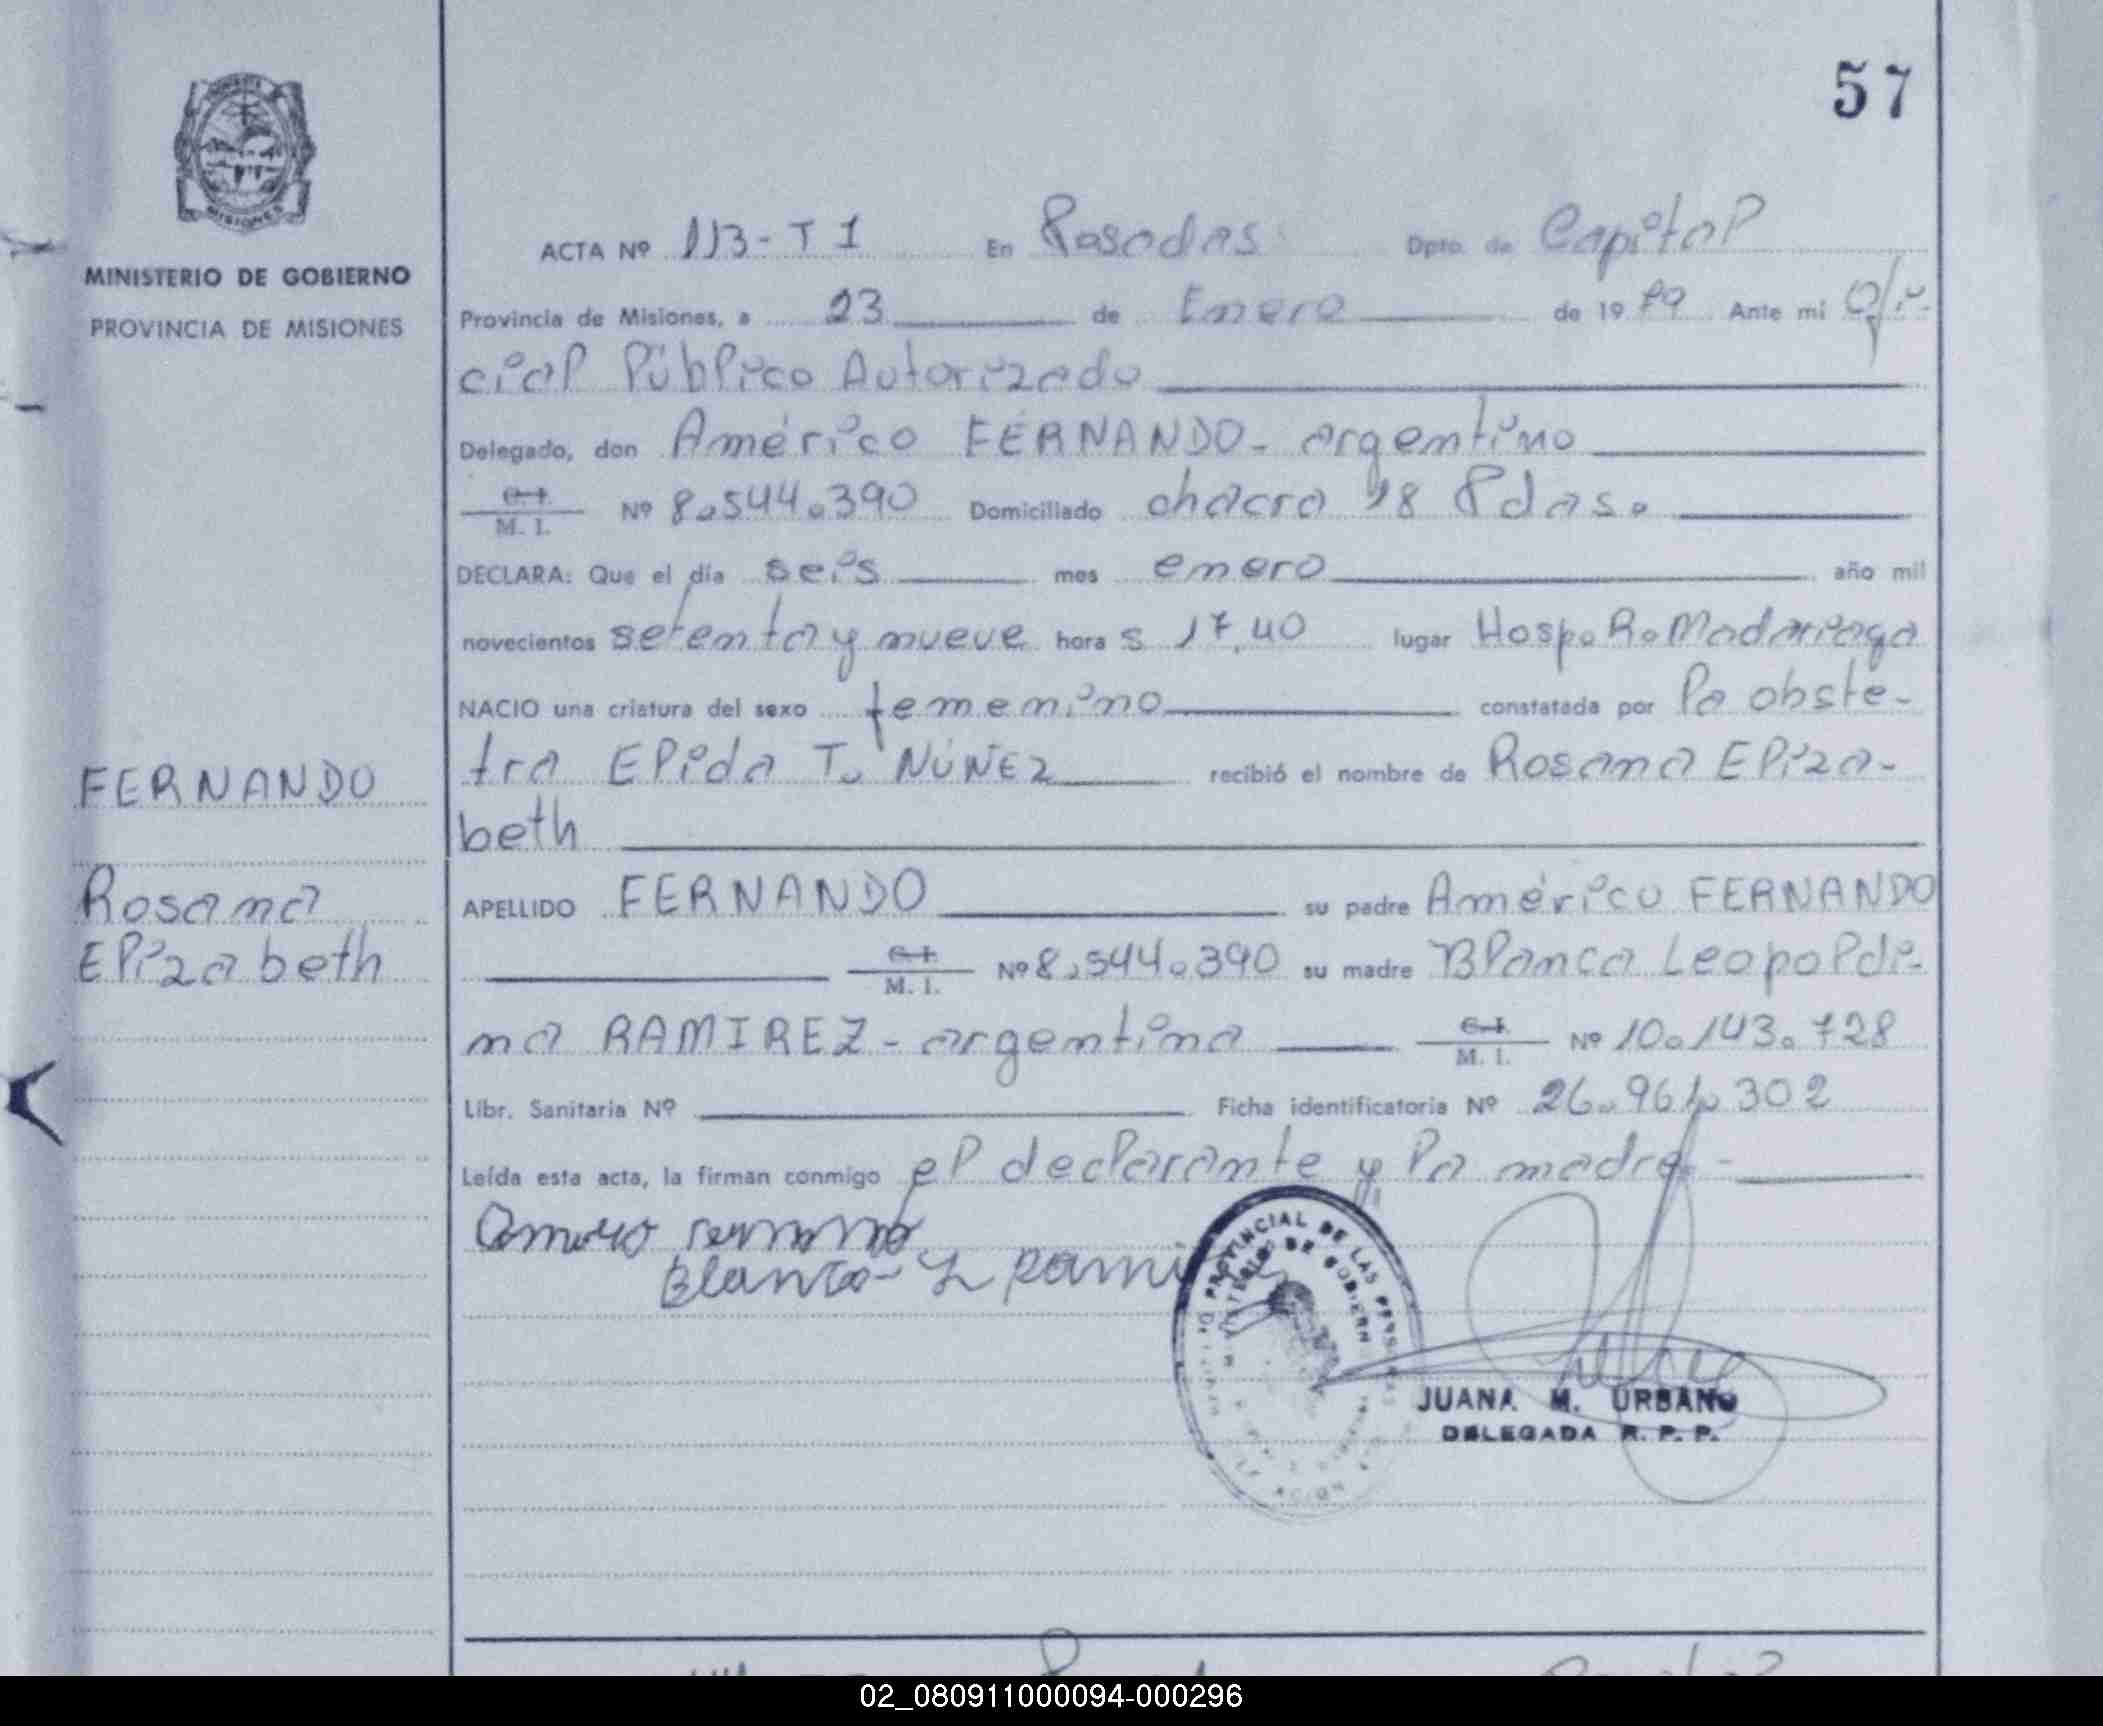 57
MINISTERIO DE GOBIERNO
PROVINCIA DE MISIONES
ACTA Nº 113-T1 En Posadas Dpto. de Capital
Provincia de Misiones, a 23 de Enero de 1979 Ante mi Ofi-
cial Público Autorizado
Delegado, don Américo FERNANDO- argentino
C.I. M. I. Nº 8.544.390 Domiciliado chacra 98 Pdas.
DECLARA: Que el día seis mes enero año mil
novecientos setenta y nueve hora s 17,40 lugar Hosp. R. Madariaga
NACIO una criatura del sexo femenino constatada por la obste-
tra Elida T. NÚÑEZ recibió el nombre de Rosana Eliza-
beth
APELLIDO FERNANDO su padre Américo FERNANDO
C.I. M. I. Nº 8.544.390 su madre Blanca Leopoldi-
na RAMIREZ - argentina C.I. M. I. Nº 10.143.728
Libr. Sanitaria Nº Ficha identificatoria Nº 26.961.302
Leída esta acta, la firman conmigo el declarante y la madre.-
FERNANDO
Rosana
Elizabeth
Blanca L Rami
PROVINCIAL DE LAS PERSONAS
JUANA M. URBANO
DELEGADA R. P. P.
MISIONES
02_080911000094-000296